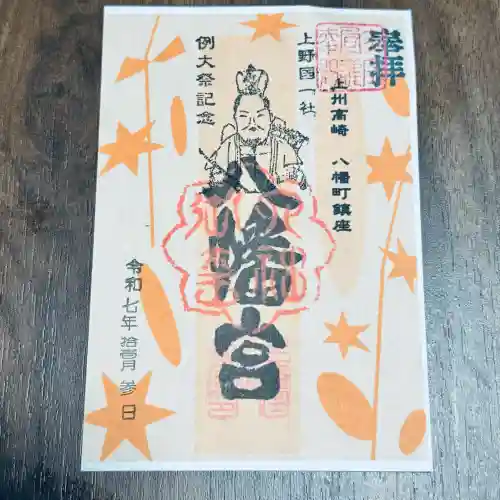 奉拝
上州高崎 八幡町鎮座
上野國一社
八幡宮
例大祭記念
令和七年拾壹月参日